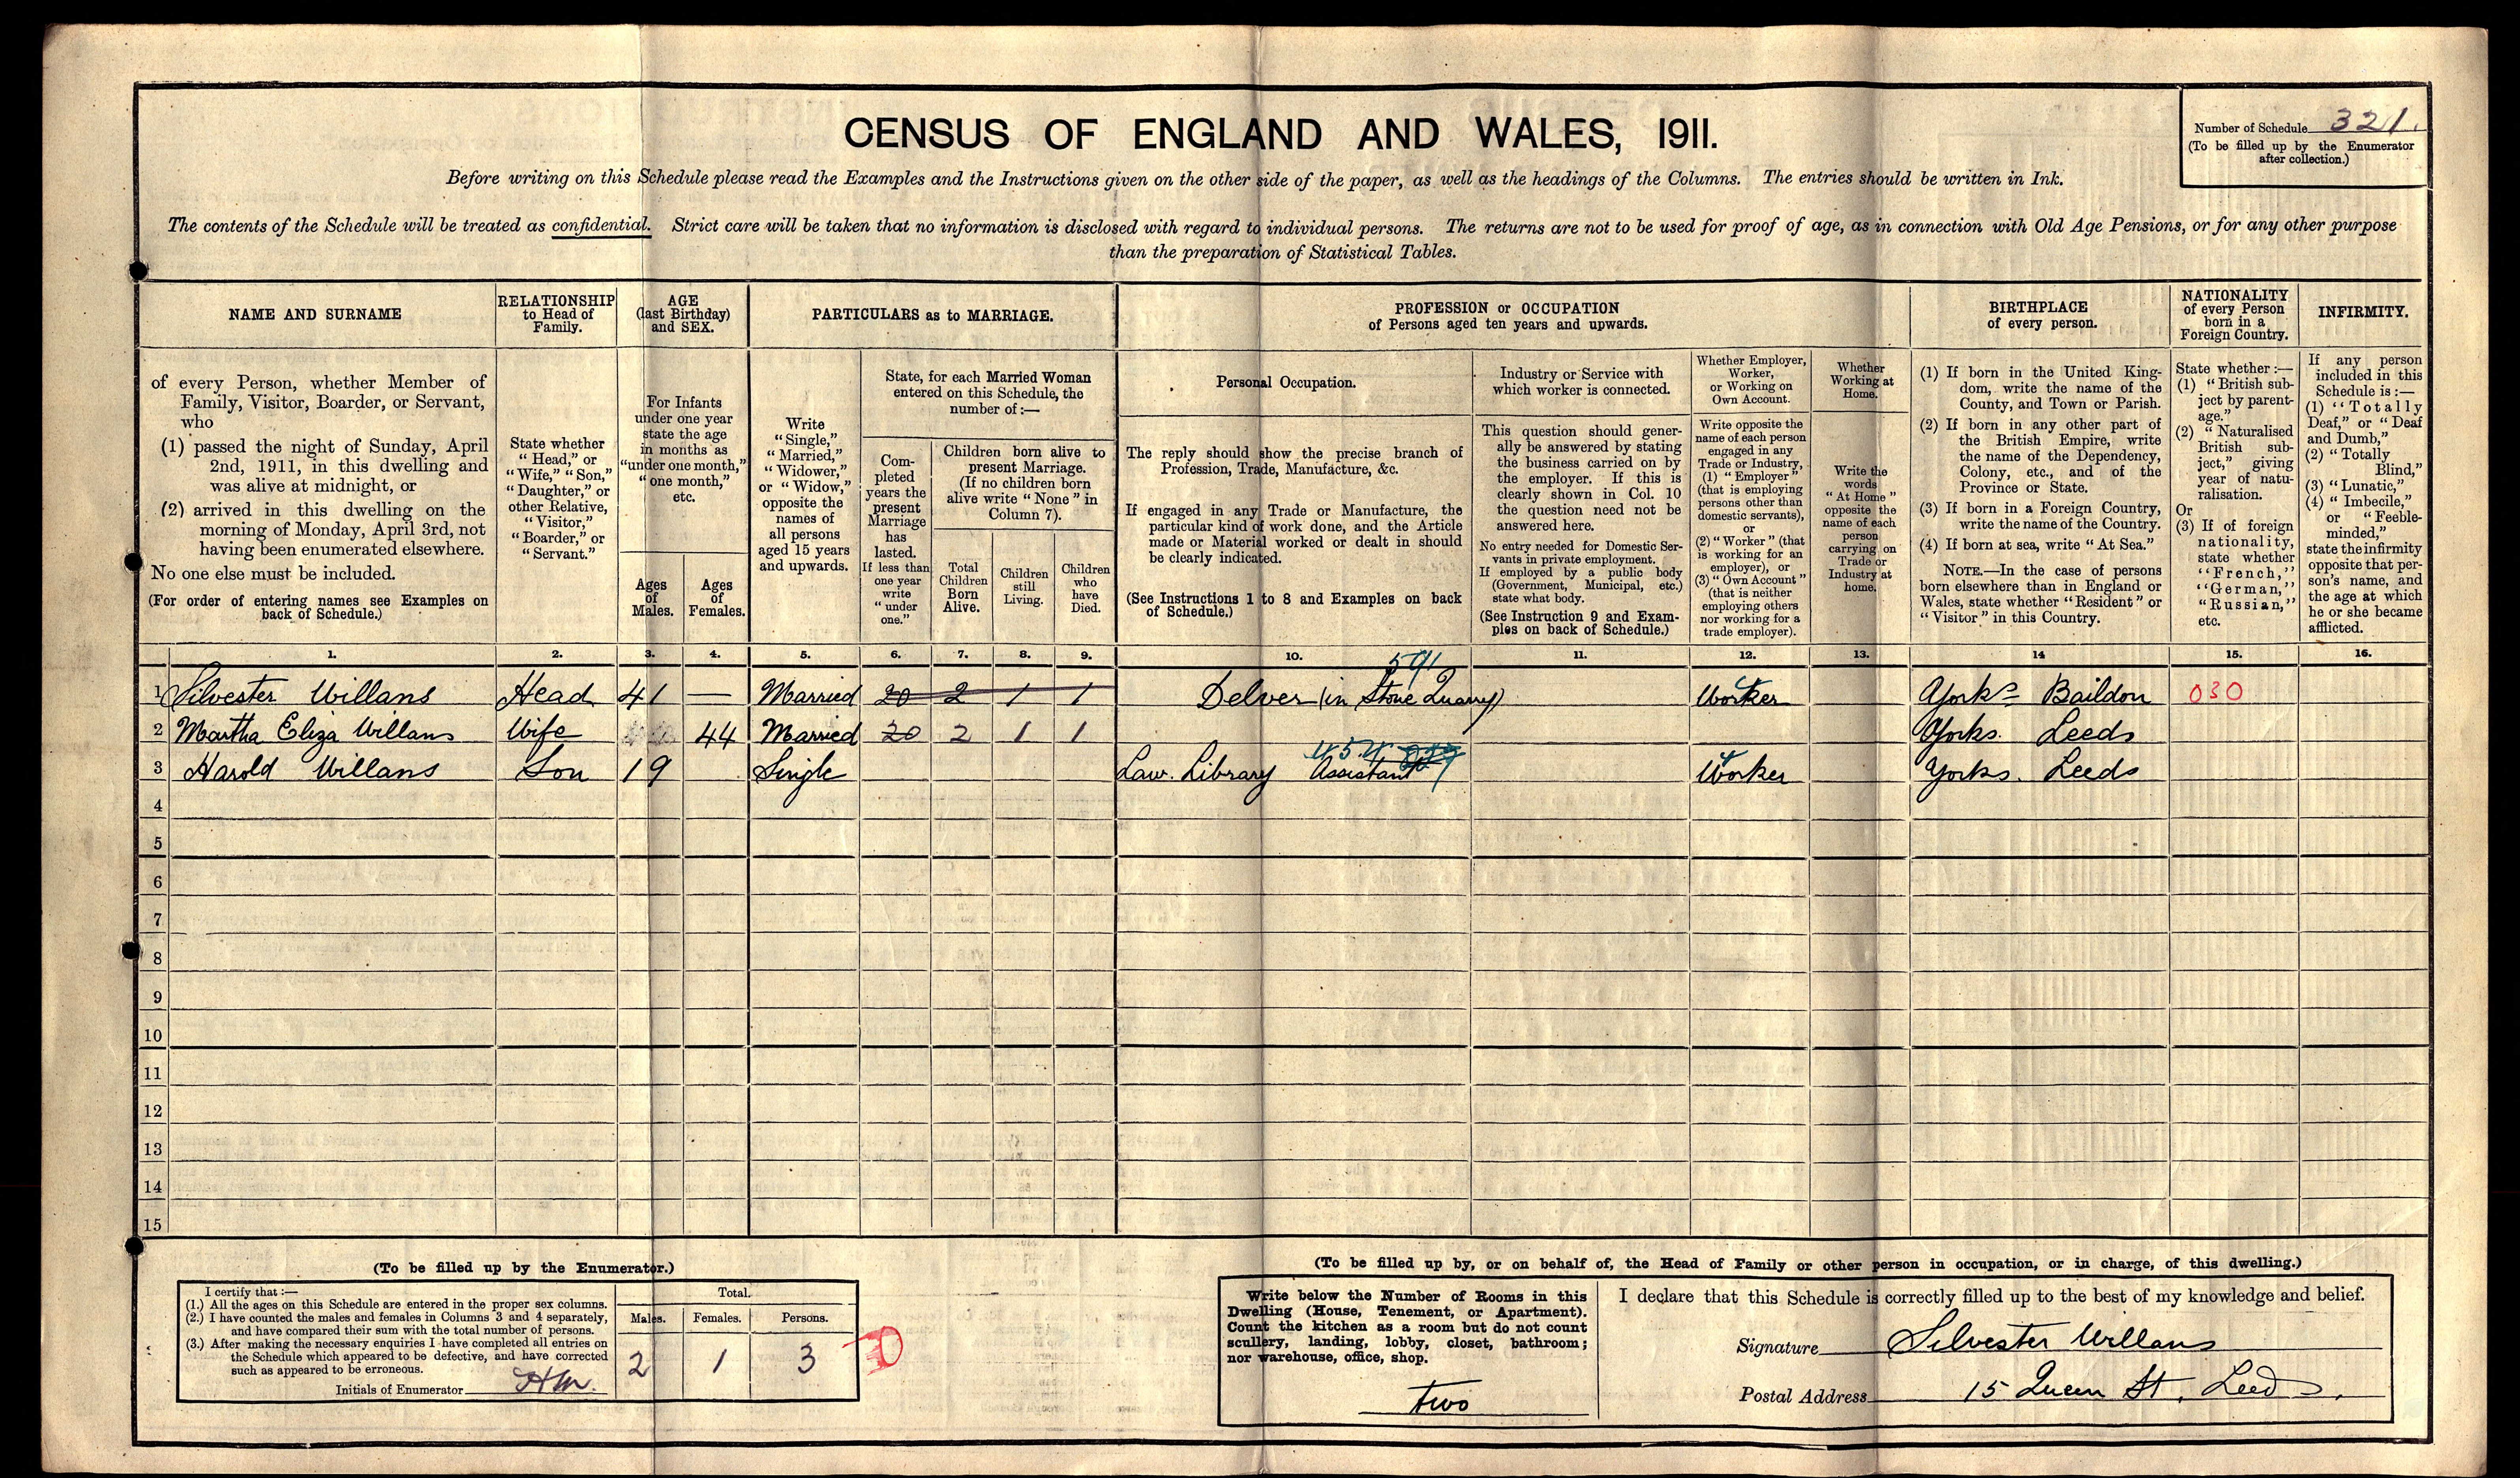 CENSUS OF ENGLAND AND WALES, 1911.
Number of Schedule 321.
(To be filled up by the Enumerator
after collection.)
Before writing on this Schedule please read the Examples and the Instructions given on the other side of the paper, as well as the headings of the Columns. The entries should be written in Ink.
The contents of the Schedule will be treated as confidential. Strict care will be taken that no information is disclosed with regard to individual persons. The returns are not to be used for proof of age, as in connection with Old Age Pensions, or for any other purpose
than the preparation of Statistical Tables.
NAME AND SURNAME
of every Person, whether Member of
Family, Visitor, Boarder, or Servant,
who
(1) passed the night of Sunday, April
2nd, 1911, in this dwelling and
was alive at midnight, or
(2) arrived in this dwelling on the
morning of Monday, April 3rd, not
having been enumerated elsewhere.
No one else must be included.
(For order of entering names see Examples on
back of Schedule.)
RELATIONSHIP
to Head of
Family.
State whether
"Head," or
"Wife," "Son,"
"Daughter," or
other Relative,
"Visitor,"
"Boarder," or
"Servant."
AGE
(last Birthday)
and SEX.
For Infants
under one year
state the age
in months as
"under one month,"
"one month,"
etc.
Ages
of
Males.
Ages
of
Females.
PARTICULARS as to MARRIAGE.
Write
"Single,"
"Married,"
"Widower,"
or "Widow,"
opposite the
names of
all persons
aged 15 years
and upwards.
State, for each Married Woman
entered on this Schedule, the
number of:—
Com-
pleted
years the
present
Marriage
has
lasted.
If less than
one year
write
"under
one."
Children born alive to
present Marriage.
(If no children born
alive write "None" in
Column 7).
Total
Children
Born
Alive.
Children
still
Living.
Children
who
have
Died.
PROFESSION or OCCUPATION
of Persons aged ten years and upwards.
Personal Occupation.
The reply should show the precise branch of
Profession, Trade, Manufacture, &c.
If engaged in any Trade or Manufacture, the
particular kind of work done, and the Article
made or Material worked or dealt in should
be clearly indicated.
(See Instructions 1 to 8 and Examples on back
of Schedule.)
Industry or Service with
which worker is connected.
This question should gener-
ally be answered by stating
the business carried on by
the employer. If this is
clearly shown in Col. 10
the question need not be
answered here.
No entry needed for Domestic Ser-
vants in private employment.
If employed by a public body
(Government, Municipal, etc.)
state what body.
(See Instruction 9 and Exam-
ples on back of Schedule.)
Whether Employer,
Worker,
or Working on
Own Account.
Write opposite the
name of each person
engaged in any
Trade or Industry,
(1) "Employer"
(that is employing
persons other than
domestic servants),
or
(2) "Worker" (that
is working for an
employer), or
(3) "Own Account"
(that is neither
employing others
nor working for a
trade employer).
Whether
Working at
Home.
Write the
words
"At Home"
opposite the
name of each
person
carrying on
Trade or
Industry at
home.
BIRTHPLACE
of every person.
(1) If born in the United King-
dom, write the name of the
County, and Town or Parish.
(2) If born in any other part of
the British Empire, write
the name of the Dependency,
Colony, etc., and of the
Province or State.
(3) If born in a Foreign Country,
write the name of the Country.
(4) If born at sea, write "At Sea."
NOTE.—In the case of persons
born elsewhere than in England or
Wales, state whether "Resident" or
"Visitor" in this Country.
NATIONALITY
of every Person
born in a
Foreign Country.
State whether:—
(1) "British sub-
ject by parent-
age."
(2) "Naturalised
British sub-
ject," giving
year of natu-
ralisation.
Or
(3) If of foreign
nationality,
state whether
"French,"
"German,"
"Russian,"
etc.
INFIRMITY.
If any person
included in this
Schedule is:—
(1) "Totally
Deaf," or "Deaf
and Dumb,"
(2) "Totally
Blind,"
(3) "Lunatic,"
(4) "Imbecile,"
or "Feeble-
minded,"
state the infirmity
opposite that per-
son's name, and
the age at which
he or she became
afflicted.
1. 2. 3. 4. 5. 6. 7. 8. 9. 10. 11. 12. 13. 14 15. 16.
591
1 Silvester Willans Head 41 — Married 20 2 1 1 Delver (in Stone Quarry) Worker Yorks Baildon 030
2 Martha Eliza Willans Wife 44 Married 20 2 1 1 Yorks. Leeds
3 Harold Willans Son 19 Single Law. Library Assistant Worker Yorks. Leeds
4
5
6
7
8
9
10
11
12
13
14
15
(To be filled up by the Enumerator.)
I certify that:—
(1.) All the ages on this Schedule are entered in the proper sex columns.
(2.) I have counted the males and females in Columns 3 and 4 separately,
and have compared their sum with the total number of persons.
(3.) After making the necessary enquiries I have completed all entries on
the Schedule which appeared to be defective, and have corrected
such as appeared to be erroneous.
Initials of Enumerator
Total.
Males. Females. Persons.
2 1 3
(To be filled up by, or on behalf of, the Head of Family or other person in occupation, or in charge, of this dwelling.)
Write below the Number of Rooms in this
Dwelling (House, Tenement, or Apartment).
Count the kitchen as a room but do not count
scullery, landing, lobby, closet, bathroom;
nor warehouse, office, shop.
two
I declare that this Schedule is correctly filled up to the best of my knowledge and belief.
Signature Silvester Willans
Postal Address 15 Queen St, Leeds.